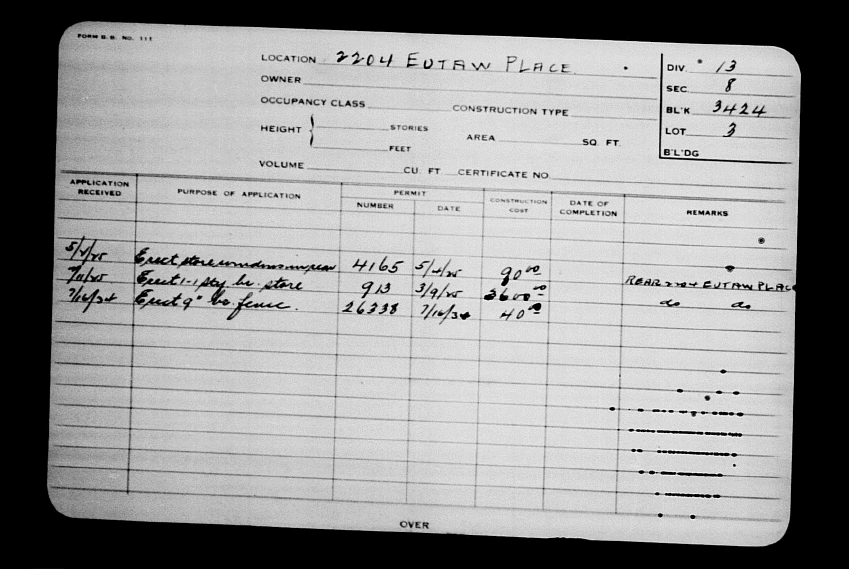 FORM B. B. NO. 111
LOCATION 2204 EUTAW PLACE.
OWNER
OCCUPANCY CLASS CONSTRUCTION TYPE
HEIGHT STORIES AREA SQ. FT.
FEET
VOLUME CU. FT. CERTIFICATE NO.
DIV. 13
SEC. 8
BL'K 3424
LOT 3
B'L'DG
APPLICATION RECEIVED PURPOSE OF APPLICATION PERMIT NUMBER DATE CONSTRUCTION COST DATE OF COMPLETION REMARKS
Erect store windows in rear 4165 5/4/25 90.00
Erect 1-1 sty br. store 913 3/9/25 3600.00 REAR 2204 EUTAW PLACE
7/16/34 Erect 9" br. fence. 26338 7/16/34 40.00 do do
OVER